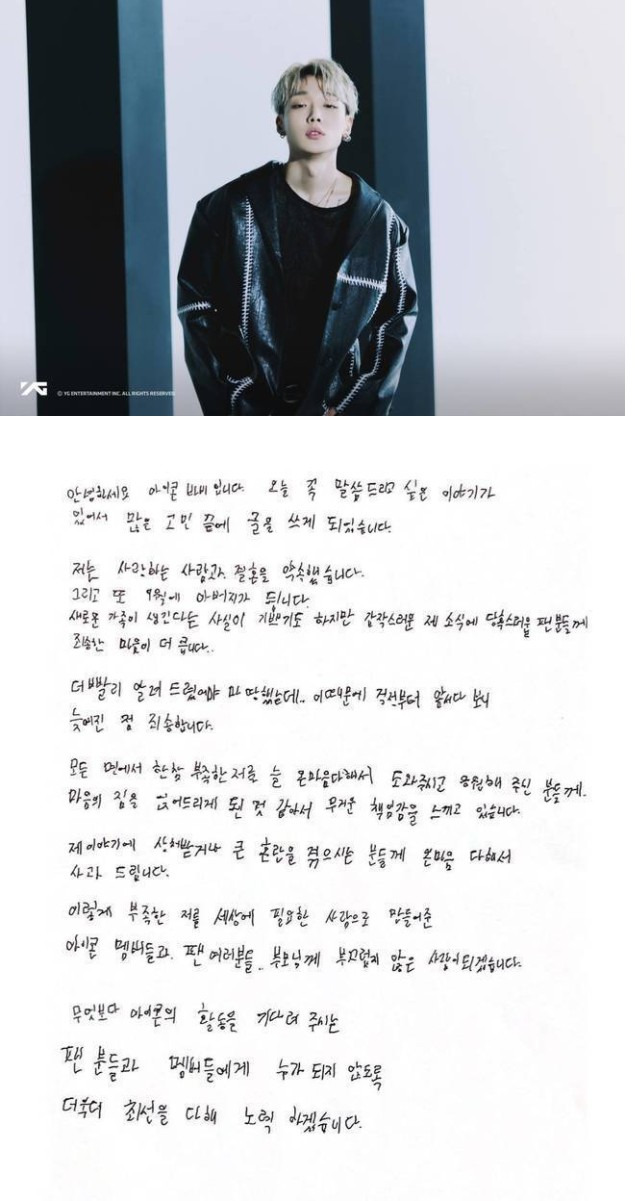 YG © YG ENTERTAINMENT INC. ALL RIGHTS RESERVED.
안녕하세요 아이콘 바비입니다. 오늘 꼭 말씀드리고 싶은 이야기가
있어서 많은 고민 끝에 글을 쓰게 되었습니다.
저는 사랑하는 사람과 결혼을 약속했습니다.
그리고 또 9월에 아버지가 됩니다.
새로운 가족이 생긴다는 사실이 기쁘기도 하지만 갑작스러운 제 소식에 당혹스러울 팬분들께
죄송한 마음이 더 큽니다..
더 빨리 알려 드렸어야 마땅했는데.. 이 때문에 걱정부터 앞서다 보니
늦어진 점 죄송합니다.
모든 면에서 한참 부족한 저를 늘 온 마음 다해서 도와주시고 응원해 주신 분들께.
마음의 짐을 얹어드리게 된 것 같아서 무거운 책임감을 느끼고 있습니다.
제 이야기에 상처받거나 큰 혼란을 겪으시는 분들께 온 마음 다해서
사과 드립니다.
이렇게 부족한 저를 세상에 필요한 사람으로 만들어준
아이콘 멤버들과. 팬 여러분들.. 부모님께 부끄럽지 않은 사람이 되겠습니다.
무엇보다 아이콘의 활동을 기다려 주시는
팬 분들과 멤버들에게 누가 되지 않도록
더욱더 최선을 다해 노력 하겠습니다.